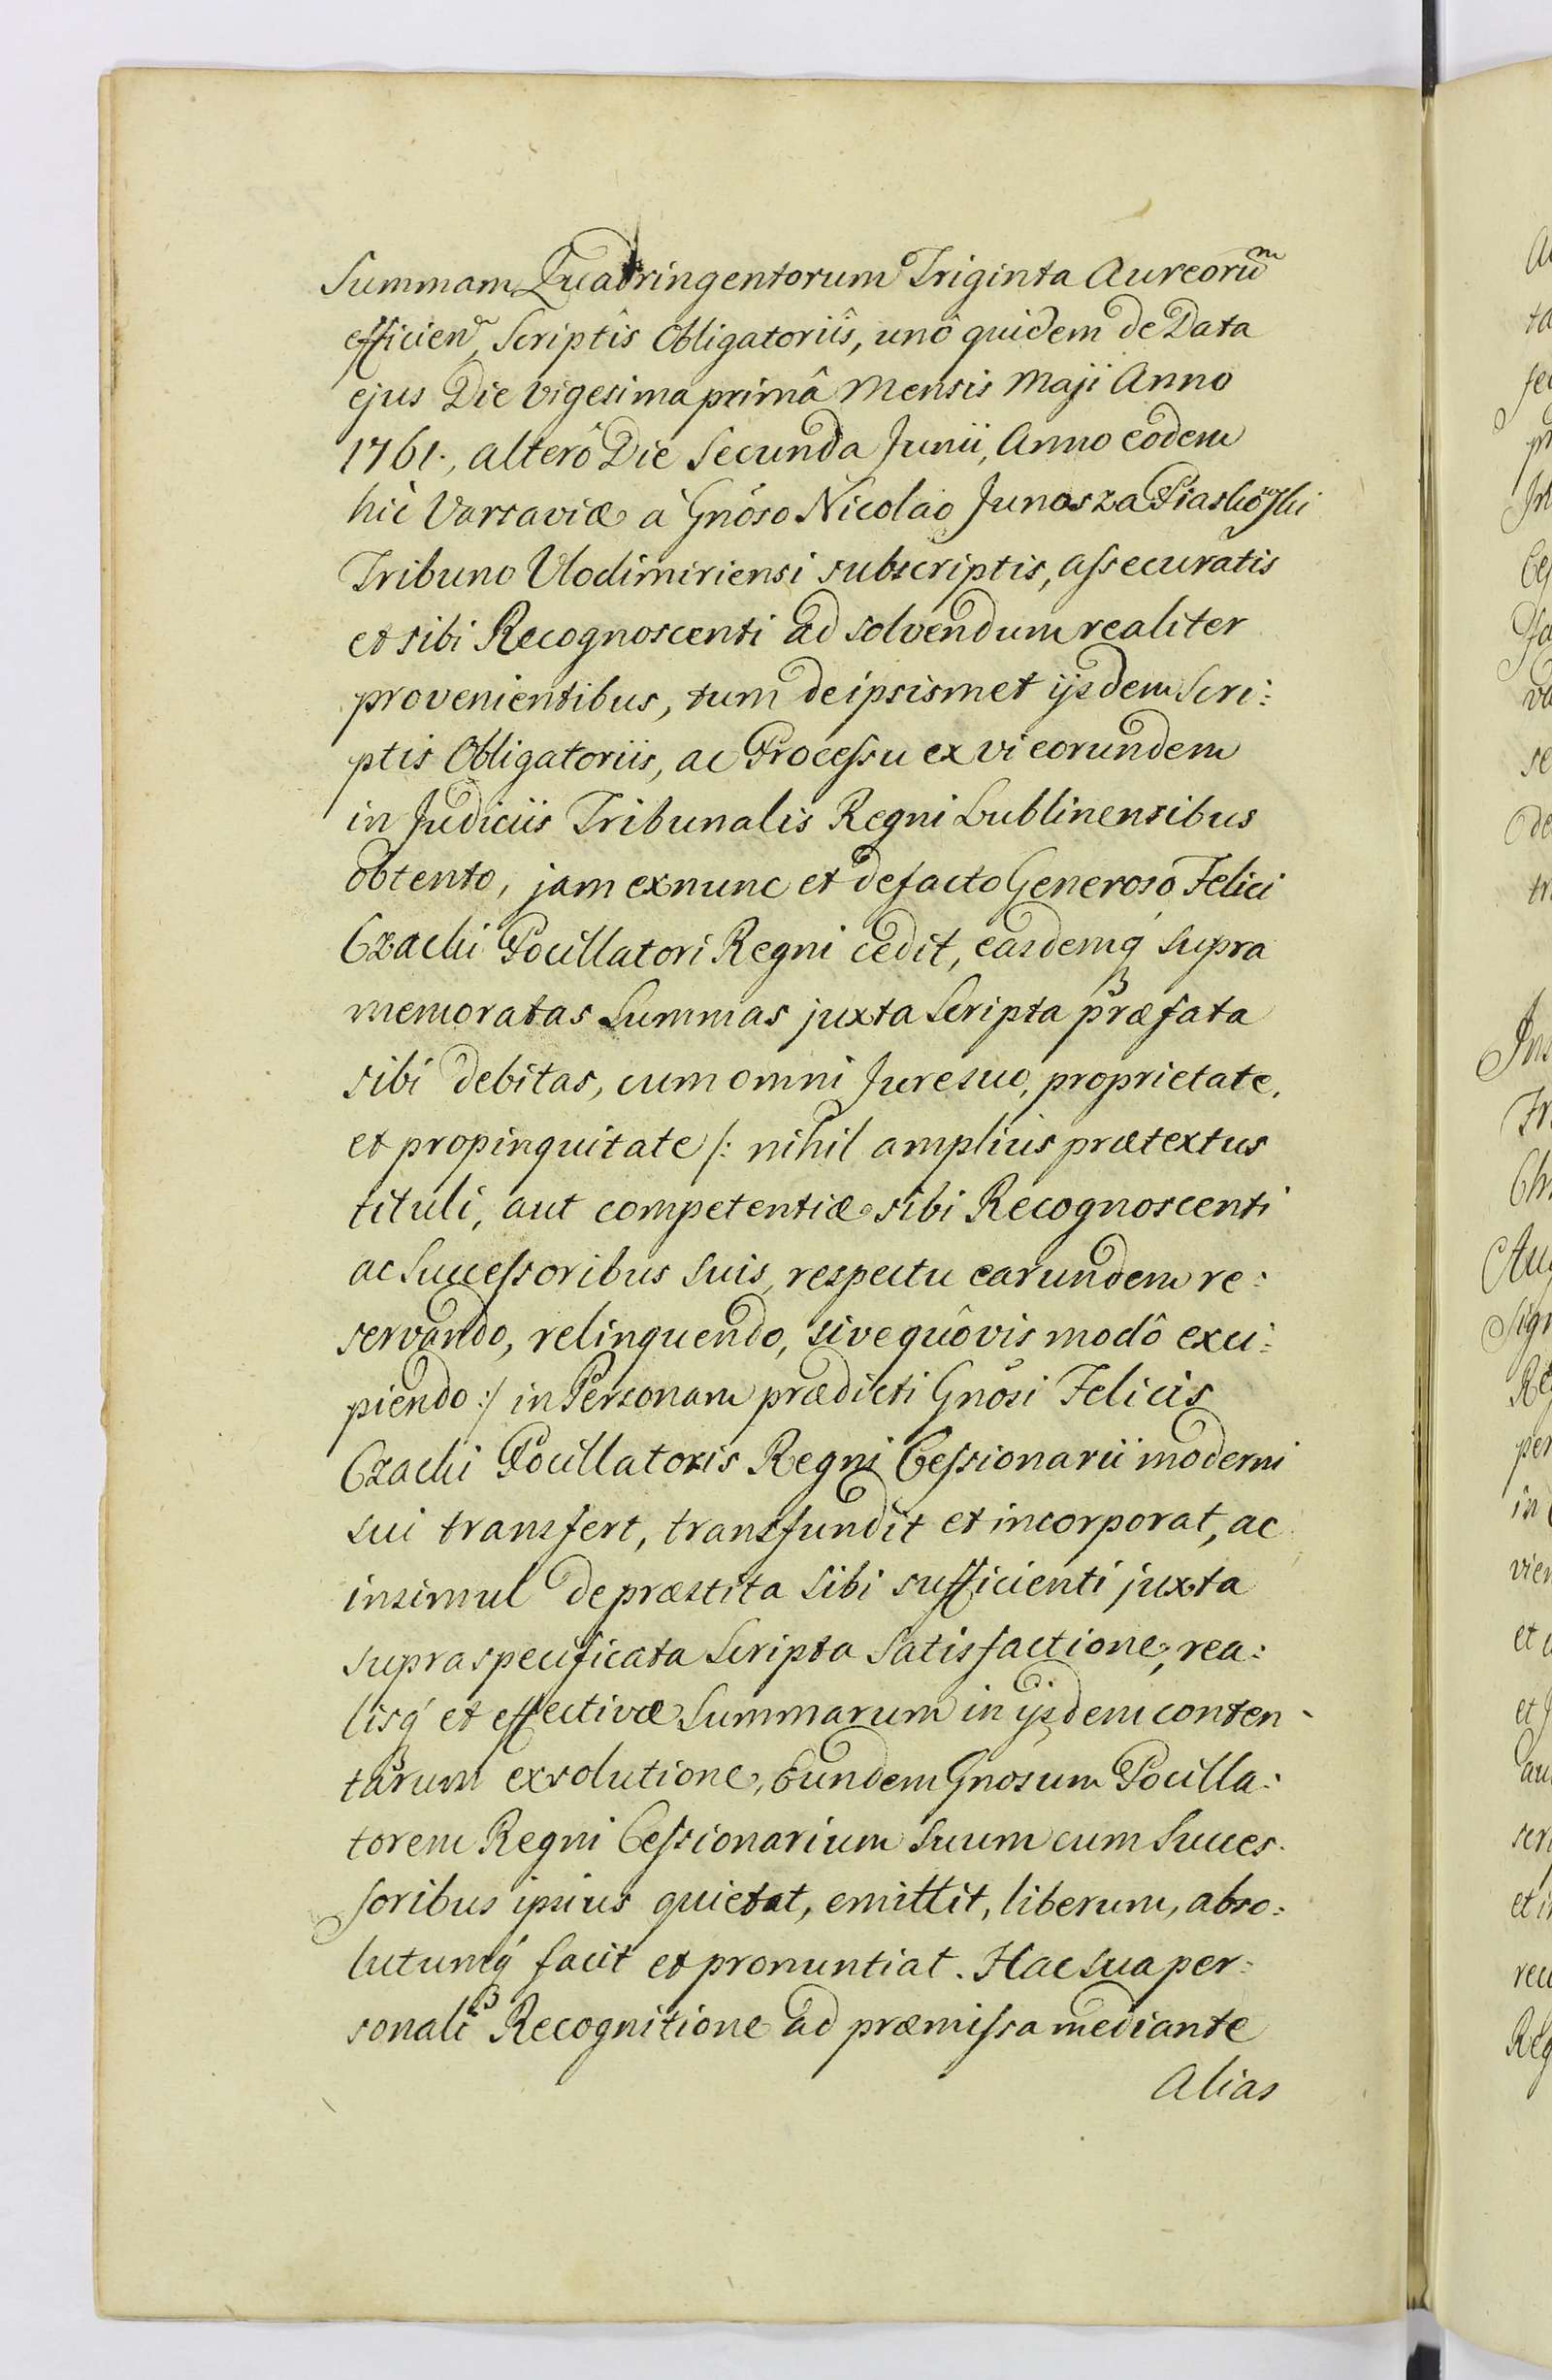 Summam Quadringentorum Triginta Aureorũm
efficien, Scriptîs Obligatoriîs, unô quidem de Data
ejus Die vigesima primâ Mensis Maji Anno
1761., alterô Die Secunda Junii, Anno eodem
hic Varsaviæ à Gnoso Nicolao Junosza Piaskowski
Tribuno Vlodimiriensi subscriptis, assecuratis
et sibi Recognoscenti ad solvendum realiter
provenientibus, tum de ipsismet ijsdem Scri:
ptis Obligatoriis, ac Processu ex vi eorundem
in Judiciis Tribunalis Regni Lublinensibus
obtento, jam exnunc et defacto Generoso Felici
Czacki Pocillatori Regni cedit, easdemq́ supra
memoratas Summas juxta Scripta præfata
sibi debitas, cum omni Jure suo, proprietate,
et propinquitate /: nihil amplius prætextus
tituli, aut competentiæ sibi Recognoscenti
ac Successoribus suis, respectu earundem re:
servando, relinquendo, sive quôvis modô exci:
piendo :/ in Personam prædicti Gnosi Felicis
Czacki Pocillatoris Regni Cessionarii moderni
sui transfert, transfundit et incorporat, ac
insimul de præstita sibi sufficienti juxta
supra specificata Scripta Satisfactione, rea:
lisq́ et effectivæ Summarum in ijsdem conten-
tarum exsolutione, Eundem Gnosum Pocilla:
torem Regni Cessionarium Suum cum Succes-
soribus ipsius quietat, emittit, liberum, abso:
lutumq́ facit et pronuntiat. Hac sua per:
sonali Recognitione ad præmissa mediante
Alias